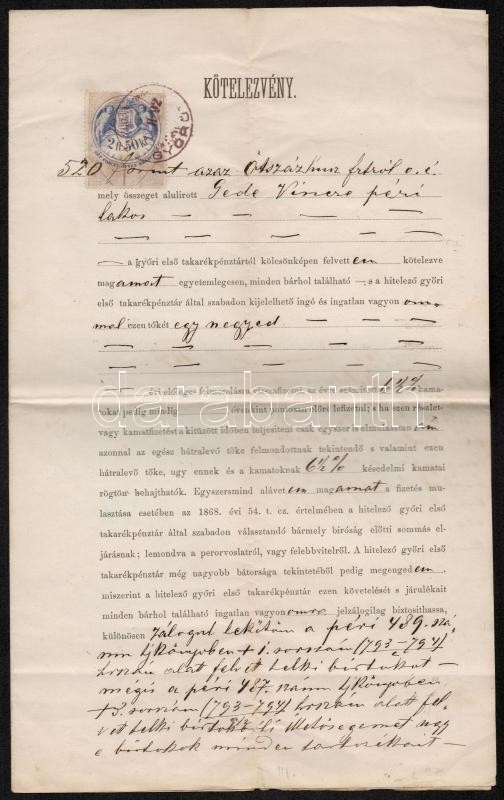 KÖTELEZVÉNY.
2 ft. 50 kr.
GYŐR
520 forint azaz Ötszázhusz frtról o. é.
mely összeget alulirott Gede Vincze péri
lakos
a győri első takarékpénztártól kölcsönképen felvettem kötelezve
magamat egyetemlegesen, minden bárhol található s a hitelező győri
első takarékpénztár által szabadon kijelelhető ingó és ingatlan vagyonom-
mal ezen tőkét egy negyed
évi előleges felmondásra visszafizetni, az évi
kama-
tokat pedig mindig évenkint pontosan előre lefizetni; s ha ezen részlet-
vagy kamatfizetést a kitüzött időben teljesíteni csak egyszer is elmulasztanám
azonnal az egész hátralevő tőke felmondottnak tekintendő s valamint ezen
hátralevő tőke, ugy ennek és a kamatoknak 6½% késedelmi kamatai
rögtön behajthatók. Egyszersmind alávetem magamat a fizetés mu-
lasztása esetében az 1868. évi 54. t. cz. értelmében a hitelező győri első
takarékpénztár által szabadon választandó bármely biróság előtti sommás el-
járásnak; lemondva a perorvoslatról, vagy felebbvitelről. A hitelező győri első
takarékpénztár még nagyobb bátorsága tekintetéből pedig megengedem,
miszerint a hitelező győri első takarékpénztár ezen követelését s járulékait
minden bárhol található ingatlan vagyonomra jelzálogilag biztosithassa,
különösen zálogul lekötöm a péri 489. szá-
mu tjkönyvben + 1. sorszám (793-794)
hrszám alatt felvett telki birtokot
mégis a péri 487. számu tjkönyvben
+ 3. sorszám (793-794) hrszám alatt fel-
vett telki birtokbóli illetőségemet ugy
e birtokok minden tartozékait
darabanth